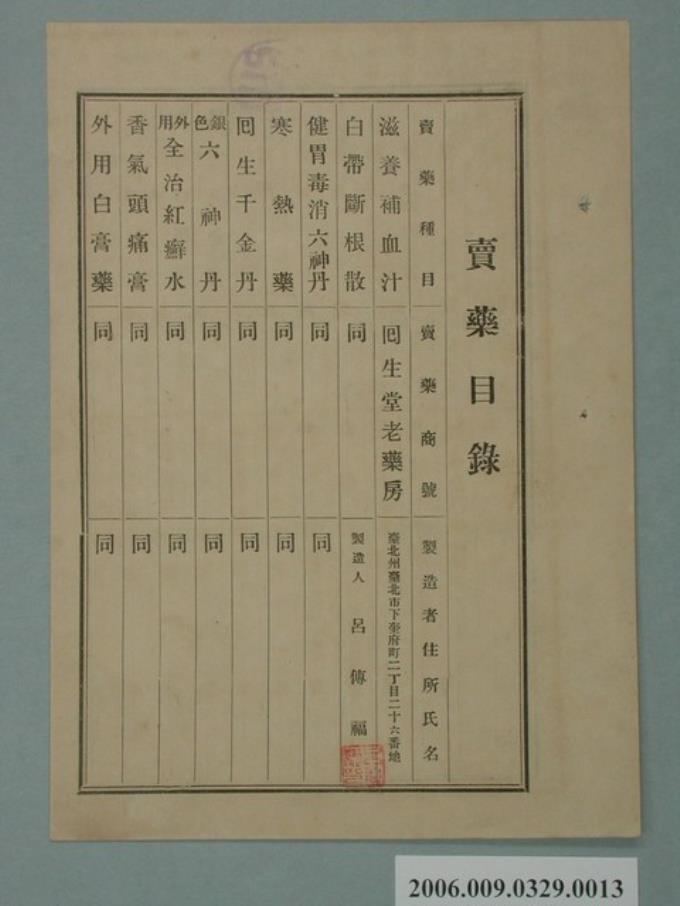 賣藥目錄
賣藥種目 賣藥商號 製造者住所氏名
滋養補血汁 囘生堂老藥房 臺北州臺北市下奎府町二丁目二十六番地
白帶斷根散 同 製造人 呂傳福
健胃毒消六神丹 同 同
寒熱藥 同 同
囘生千金丹 同 同
銀色六神丹 同 同
外用全治紅癬水 同 同
香氣頭痛膏 同 同
外用白膏藥 同 同
2006.009.0329.0013